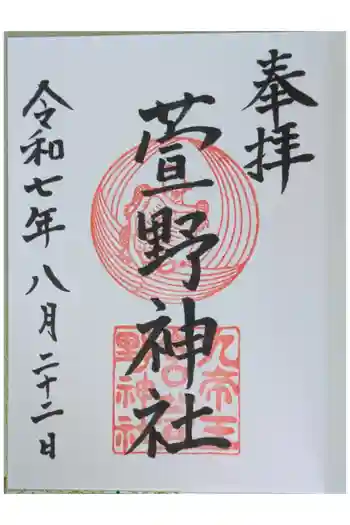 奉拝
萱野神社
令和七年八月二十二日